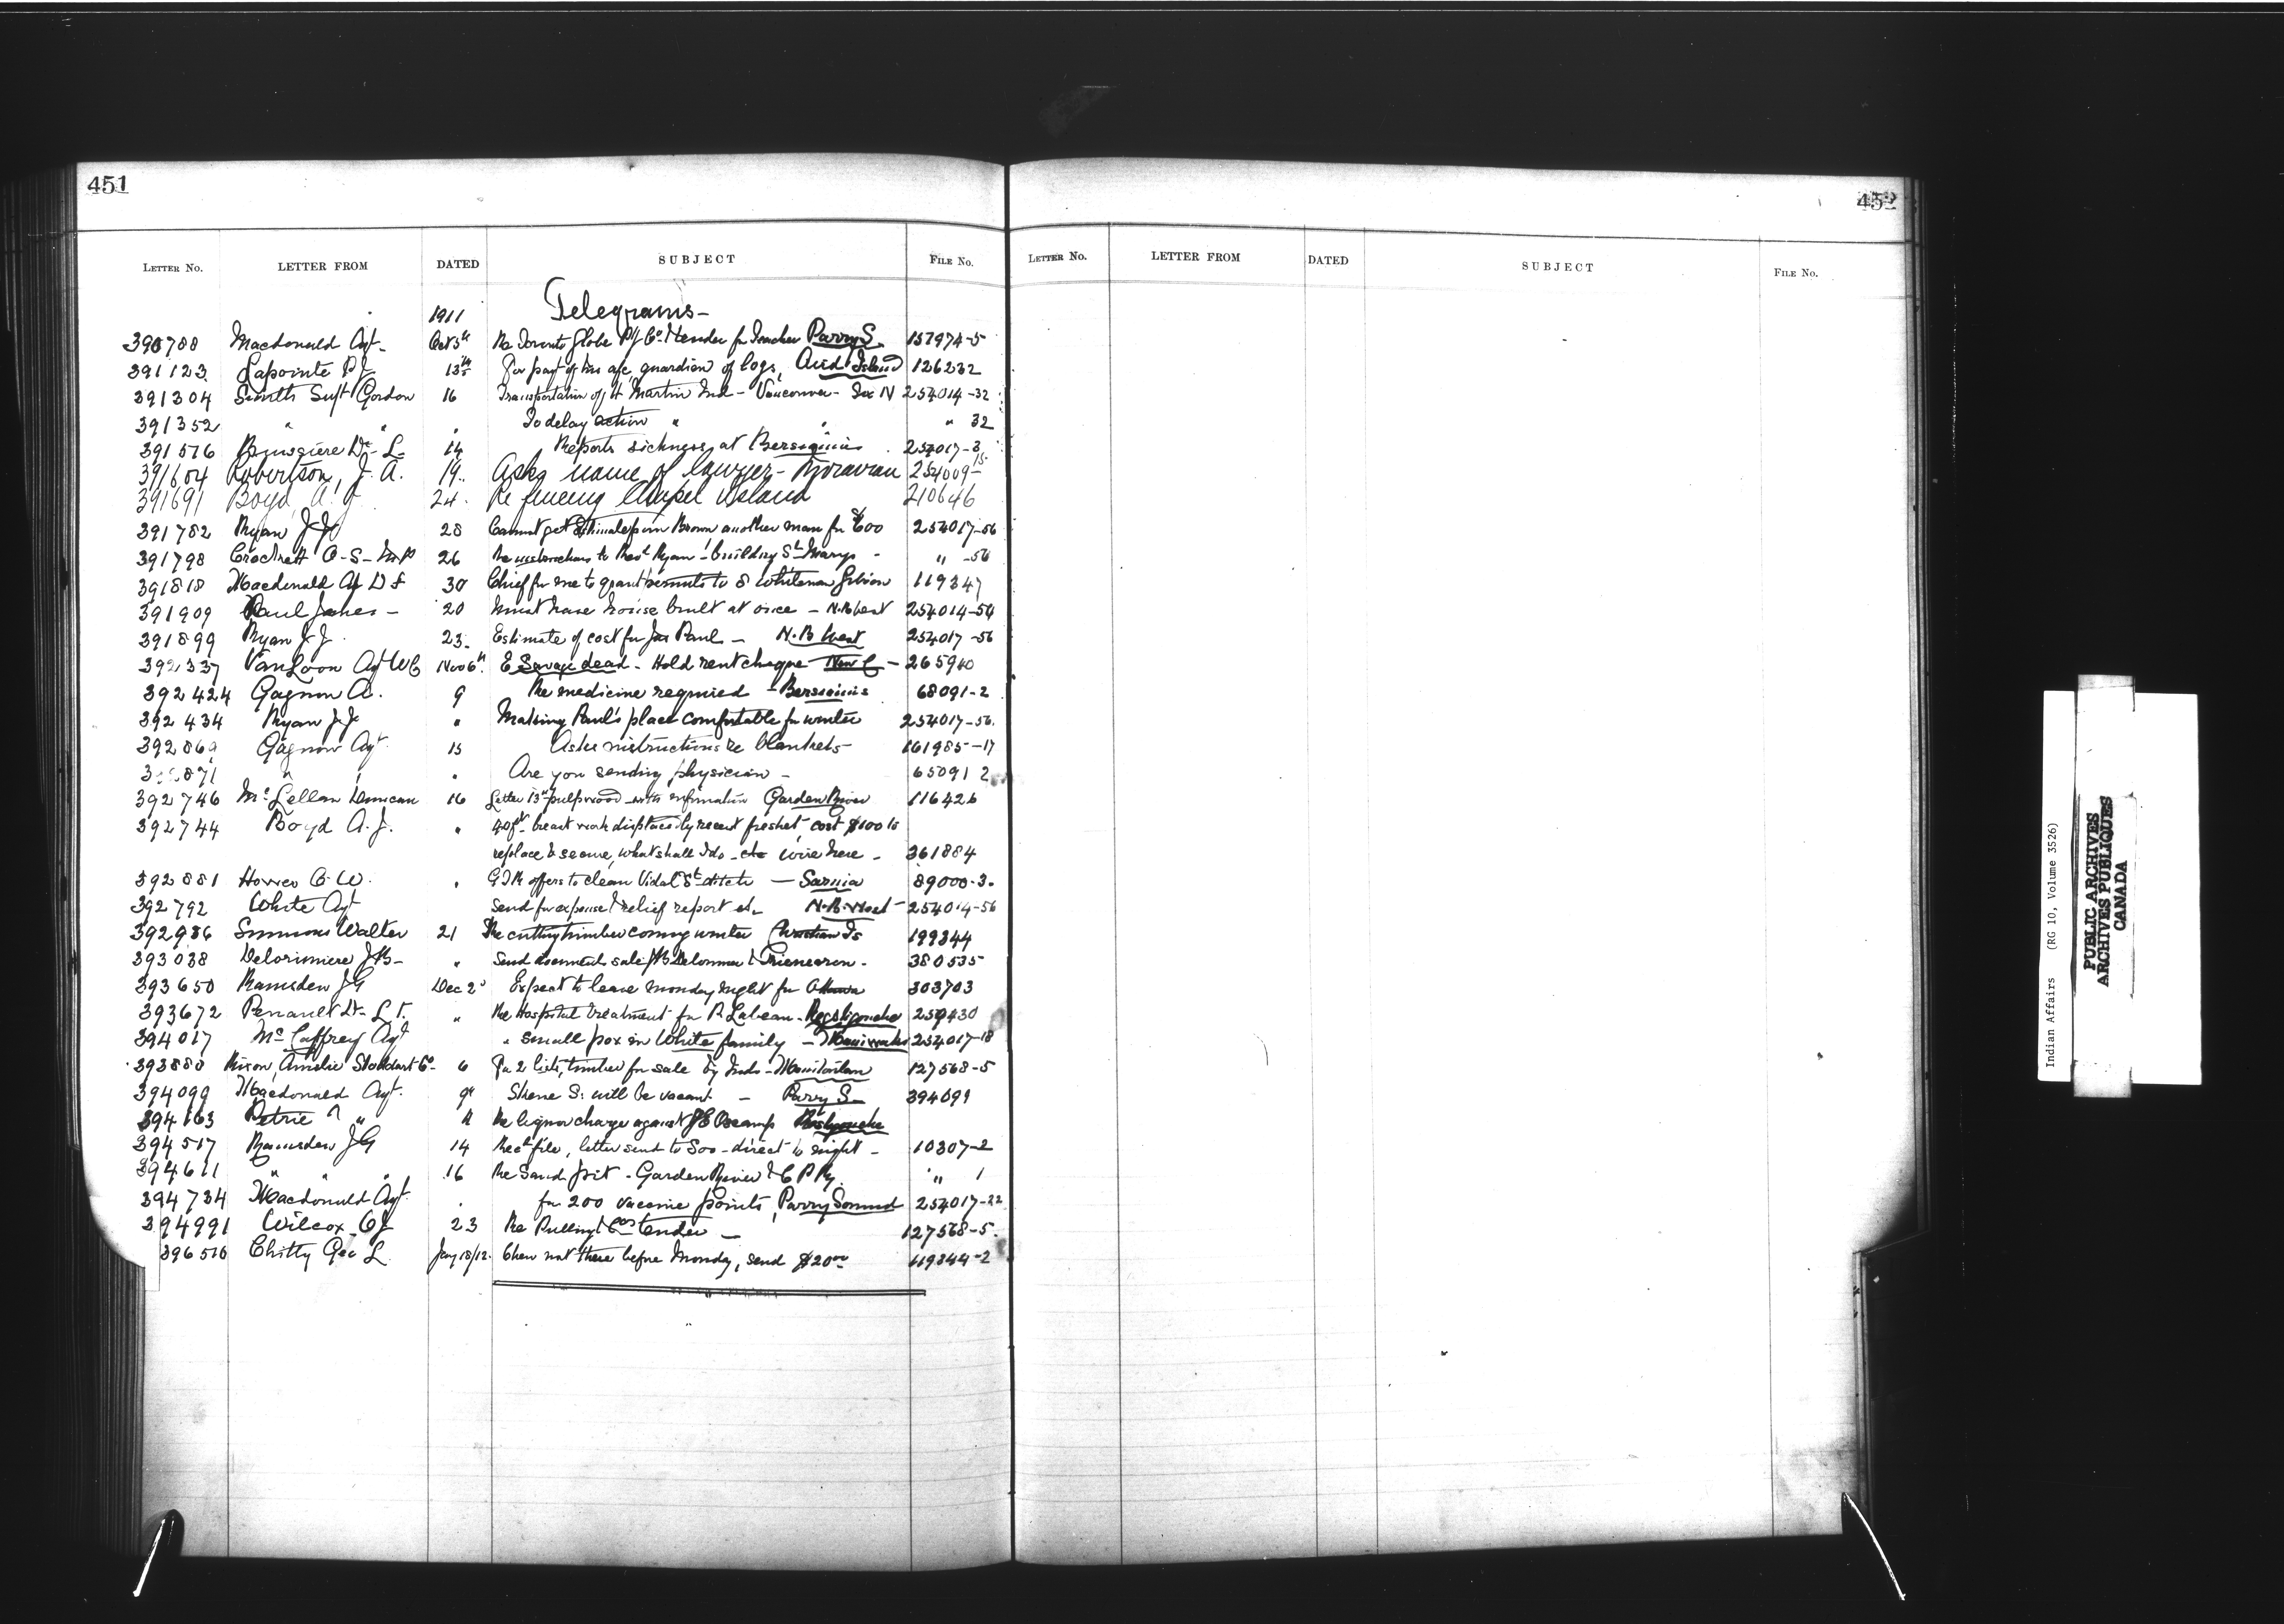 451
LETTER No. LETTER FROM DATED SUBJECT FILE No.
1911 Telegrams-
390788 Macdonald Agt- Oct 5th Re Toronto Globe Ptg Co. & tender for Teacher Parry S. 157974-5
391123 Lapointe P J 13th For payt of his a/c guardian of logs, Island 126232
391304 Smith Supt Gordon 16 Transportation of H Martin Ind - Vancouver - Six N 254014-32
391352 " " " To delay action " " " 32
391576 Brusgiere Dr L. 14 Reports sickness at Bersimis 254017-3
391604 Robertson, J. A. 19.. Asks name of lawyer - Moravian 254009-15
391691 Boyd, A. J 24. Re fencing Chapel Island 210646
391782 Ryan J J 28 Cannot get Estimate from Brown another man for $600 254017-56
391798 Crockett O-S-M.P 26 Re instructions to Revd Ryan building St Marys - " -56
391818 Macdonald Agt D F 30 Chief for me to grant permits to S Whiteman Gibson 119347
391909 Paul James - 20 Must have house built at once - N.B West 254014-56
391899 Ryan J J. 23. Estimate of cost for Jas Paul - N.B West 254017-56
392337 VanLoon Agt W C Nov 6th. E Savage dead - Hold rent cheque - New C - 265940
392424 Gagnon A. 9 Re medicine required - Bersimis 68091-2
392434 Ryan J J. " Making Paul's place comfortable for winter 254017-56.
39286 Gagnon Agt. 15 Asks instructions re blankets - 161985-17
871 " " " Are you sending physician - 65091 2
392746 McLellan Duncan 16 Letter 13th pulpwood - with information Garden River 116426
392744 Boyd A. J. " 40 ft breast work displaced by recent freshet, cost $100 to
replace & secure, what shall I do - wire here - 361884
392881 Howes C. W. " G T R offers to clean Vidal St ditch - Sarnia 89000-3.
392792 White Agt Send for expense & relief report etc N.B. West - 254014-56
392986 Simmons Walter 21 Re cutting timber coming winter Christian Is 199344
393038 Delorimiere J B- " Send documents sale J B Delorimier & 380535
393650 Ramsden J G Dec 2d Expect to leave Monday night for Ottawa 303703
393672 Perrault Dr- L T. " Re Hospital treatment for R Labeau - Restigouche 259430
394017 McCaffrey Agt " small pox in White family - Maniwaki 254017-18
393880 Nixon, Amelie Stoddart Co- 6 For 2 lists, timber for sale by Inds - Manitoulin 127568-5
394099 Macdonald Agt. 9th Skene S: will be vacant - Parry S- 394099
394163 Petrie " " 11 Re liquor charge against J E Restigouche
394517 Ramsden J G 14 Recd file, letter sent to Soo - direct to night - 10307-2
394611 " " " 16 Re Sand pit - Garden River & C P Ry. " 1
394734 Macdonald Agt. . for 200 vaccine points, Parry Sound 254017-22
394991 Wilcox O J 23 Re Pulling & Cos tender - 127568-5.
396516 Chitty Geo L. Jany 18/12. Chew not there before Monday, send $20.00 119344-2
452
LETTER No. LETTER FROM DATED SUBJECT FILE No.
Indian Affairs (RG 10, Volume 3526)
PUBLIC ARCHIVES
ARCHIVES PUBLIQUES
CANADA